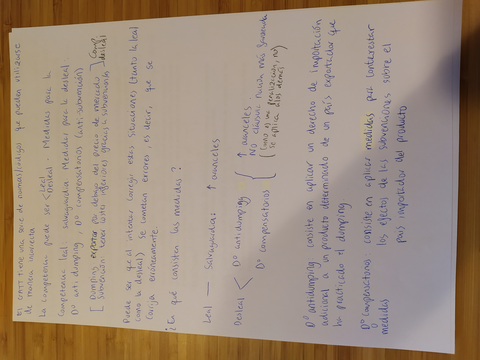 El GATT tiene una serie de normas/código que pueden utilizarse
de manera incorrecta
La competencia puede ser < Leal
Desleal · Medidas para la
Competencia leal salvaguardia Medidas para la desleal
Dº antidumping · Dº compensatorios (anti-subvención)
[ Dumping exportar por debajo del precio de mercado ] Comp.
subvención tener costes inferiores gracias a subvención desleal
Puede ser que al intentar corregir estas situaciones (tanto la leal
como la desleal) se cometan errores, es decir, que se
corrija erróneamente.
¿En qué consisten las medidas?
Leal — Salvaguardias: ↑ aranceles
Desleal < Dº antidumping { ↑ aranceles
Dº compensatorios
No cláusula Nación más favorecida
(como es una penalización, no
se aplica a los demás)
Dº antidumping consiste en aplicar un derecho de importación
adicional a un producto determinado de un país exportador que
ha practicado el dumping
Dº compensatorios consiste en aplicar medidas para contrarrestar
medidas los efectos de las subvenciones sobre el
país importador del producto